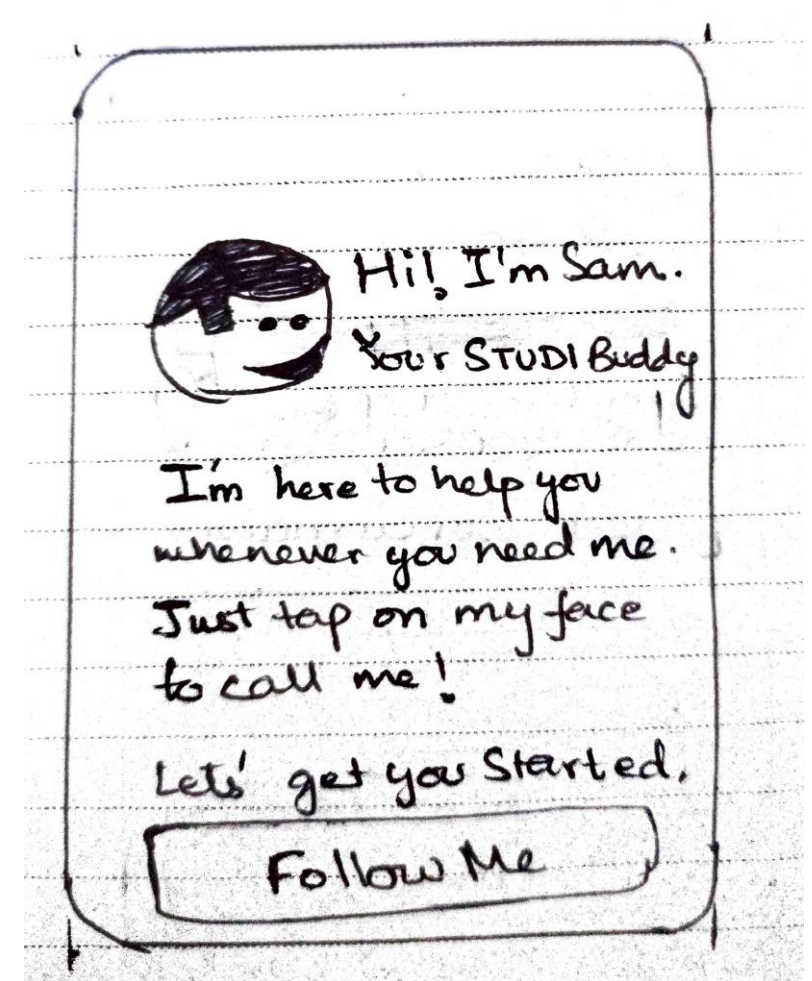 Hi! I'm Sam.
Your STUDI Buddy
I'm here to help you
whenever you need me.
Just tap on my face
to call me!
Lets' get you Started.
Follow Me